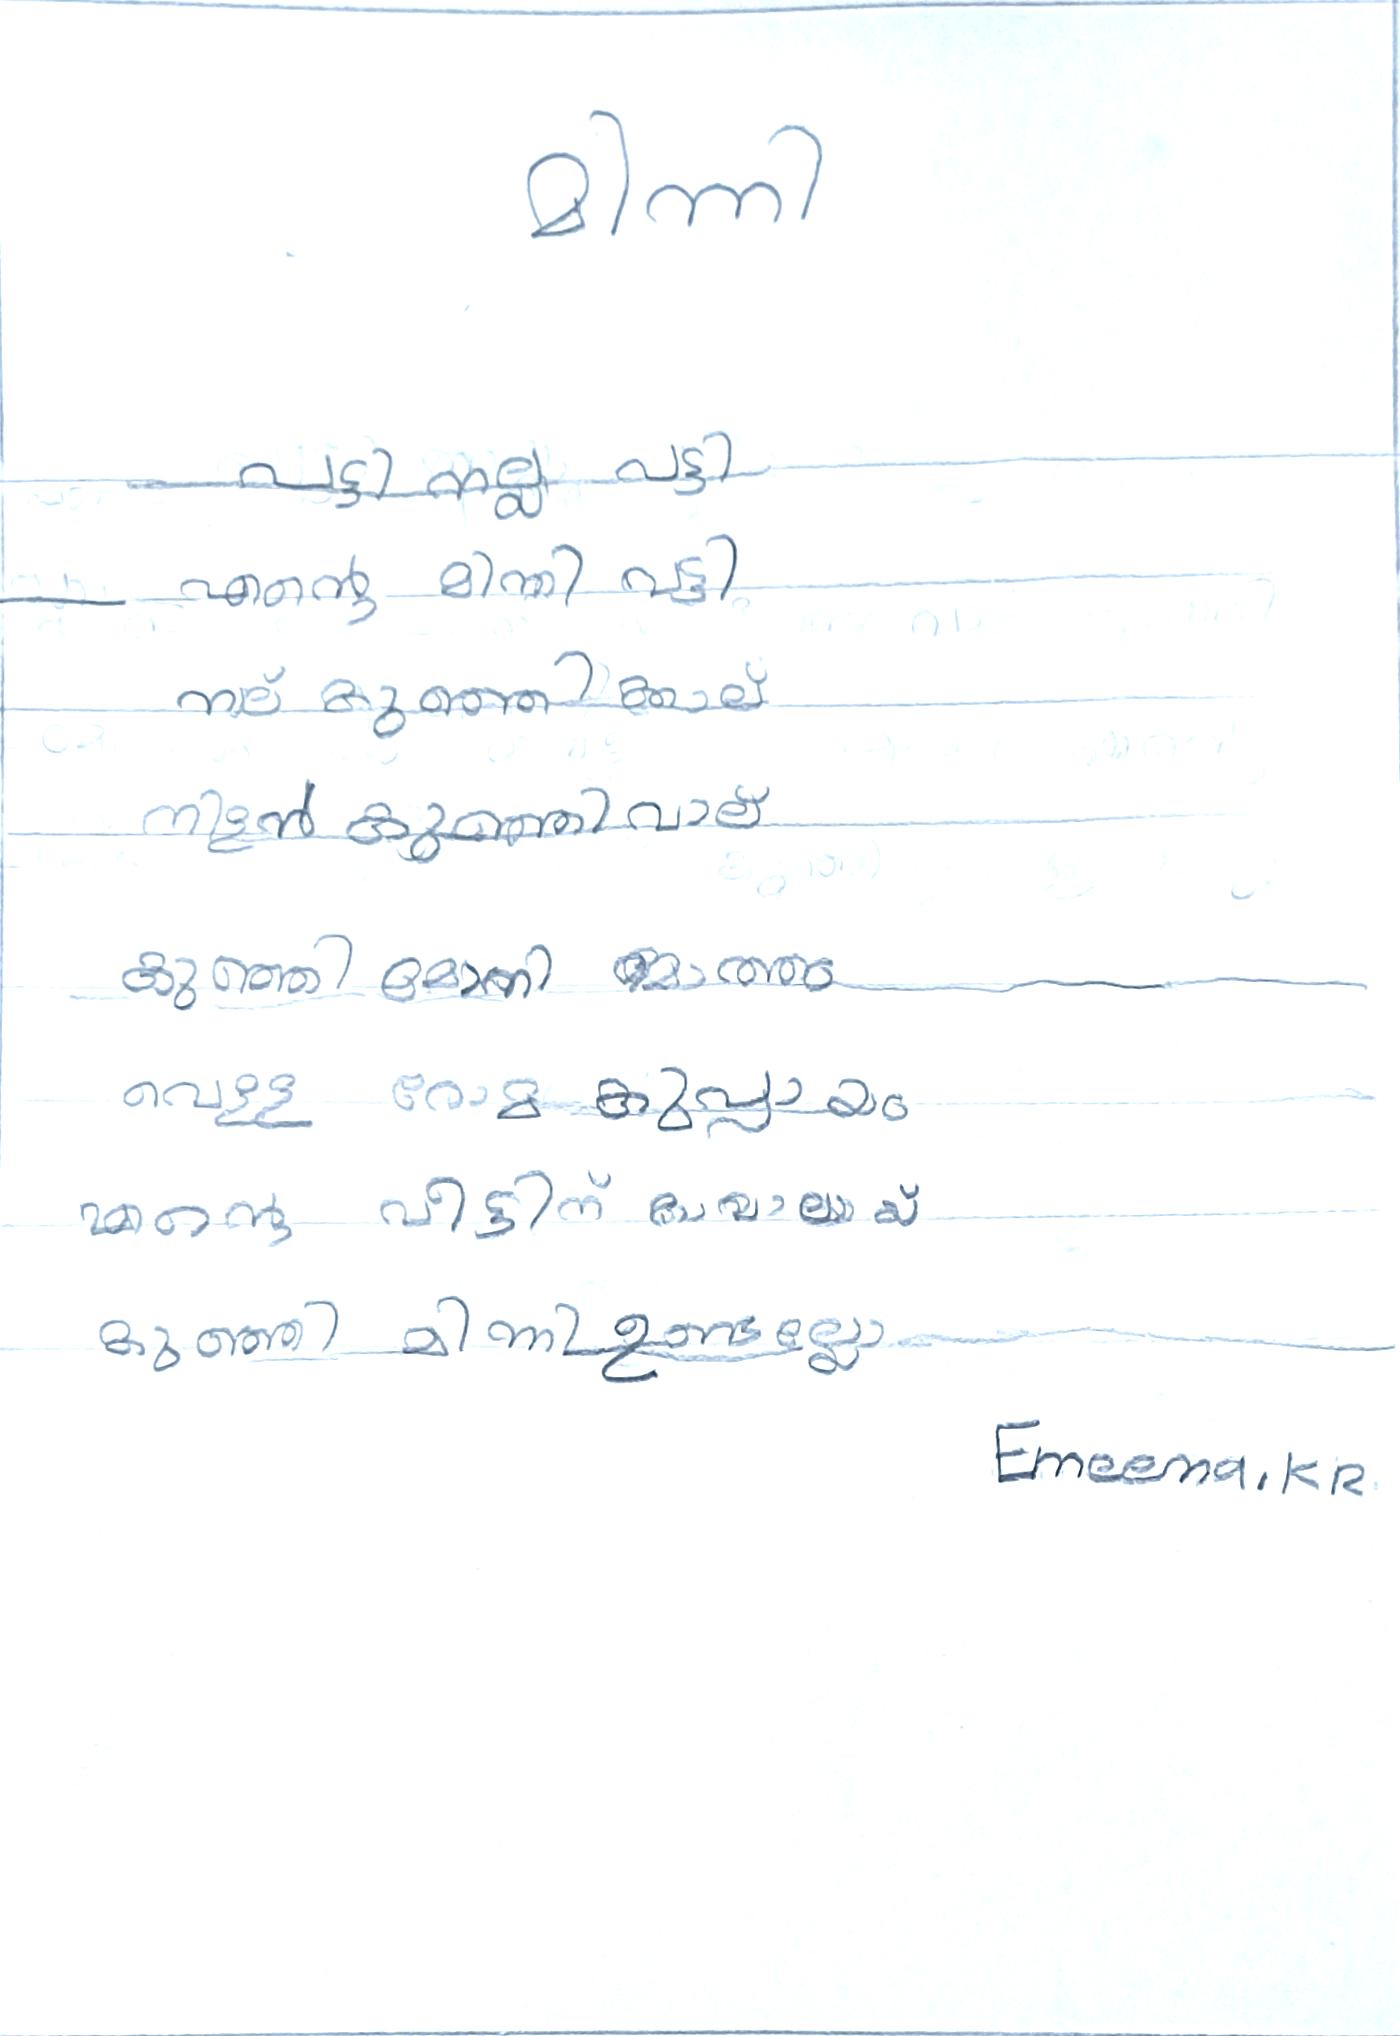 മിന്നി
പട്ടി നല്ല പട്ടി
എന്റെ മിന്നി പട്ടി
നല് കുഞ്ഞി ക്കാല്
നിളൻ കുഞ്ഞിവാല്
കുഞ്ഞി
വെള്ള രോമ കുപ്പായം
എന്റെ വീട്ടിന് കാവാലായ്
കുഞ്ഞി മിന്നി ഉണ്ടല്ലോ
Emeema.KR.